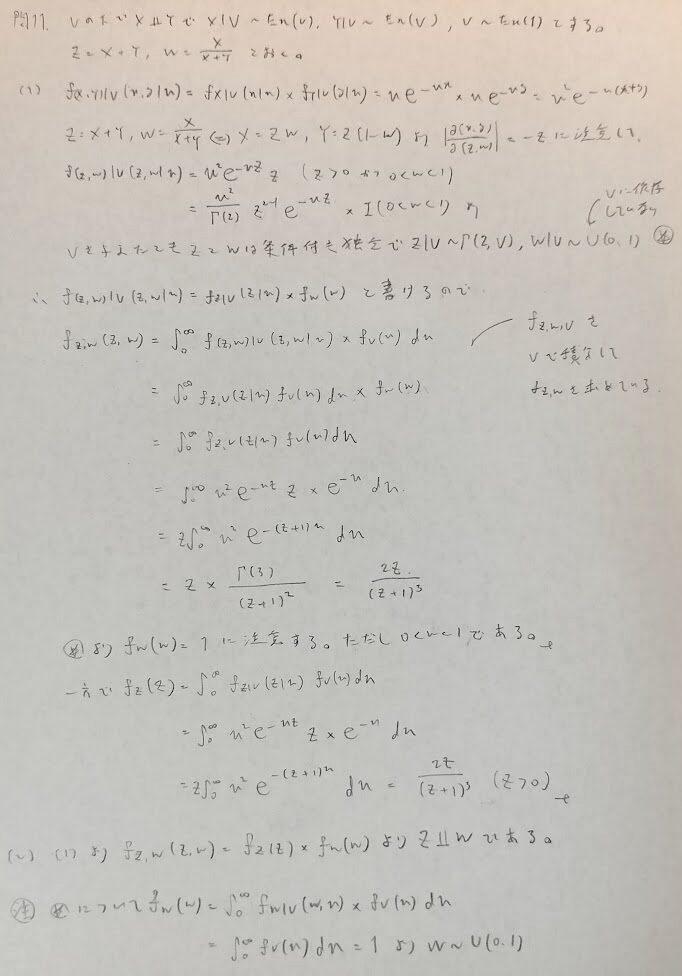 問11. Vのもとで X⫫Y で X|V ~ Ex(V), Y|V ~ Ex(V), V ~ Ex(1) とする。
Z = X+Y, W = X/(X+Y) とおく。
(1) f_{X,Y|V}(x,y|u) = f_{X|V}(x|u) × f_{Y|V}(y|u) = u e^{-ux} × u e^{-uy} = u² e^{-u(x+y)}
Z = X+Y, W = X/(X+Y) ⇔ X = ZW, Y = Z(1-W) より |∂(x,y)/∂(z,w)| = -z に注意して,
f_{(Z,W)|V}(z,w|u) = u² e^{-uz} z (z>0 かつ 0<w<1)
= u²/Γ(2) z^{2-1} e^{-uz} × I(0<w<1) より
Vに依存
していない
Vを与えたとき ZとWは条件付き独立で Z|V ~ Γ(2,V), W|V ~ U(0,1) ※
∴ f_{(Z,W)|V}(z,w|u) = f_{Z|V}(z|u) × f_W(w) と書けるので
f_{Z,W}(z,w) = ∫₀^∞ f_{(Z,W)|V}(z,w|u) × f_V(u) du
f_{Z,W,V} を
Vで積分して
f_{Z,W} を求めている.
= ∫₀^∞ f_{Z|V}(z|u) f_V(u) du × f_W(w)
= ∫₀^∞ f_{Z|V}(z|u) f_V(u) du
= ∫₀^∞ u² e^{-uz} z × e^{-u} du.
= z∫₀^∞ u² e^{-(z+1)u} du
= z × Γ(3)/(z+1)² = 2z/(z+1)³
※より f_W(w) = 1 に注意する。ただし 0<w<1 である。
一方で f_Z(z) = ∫₀^∞ f_{Z|V}(z|u) f_V(u) du
= ∫₀^∞ u² e^{-uz} z × e^{-u} du
= z∫₀^∞ u² e^{-(z+1)u} du = 2z/(z+1)³ (z>0)
(2) (1)より f_{Z,W}(z,w) = f_Z(z) × f_W(w) より Z⫫W である。
注 ※について f_W(w) = ∫₀^∞ f_{W|V}(w,u) × f_V(u) du
= ∫₀^∞ f_V(u) du = 1 より W ~ U(0,1)